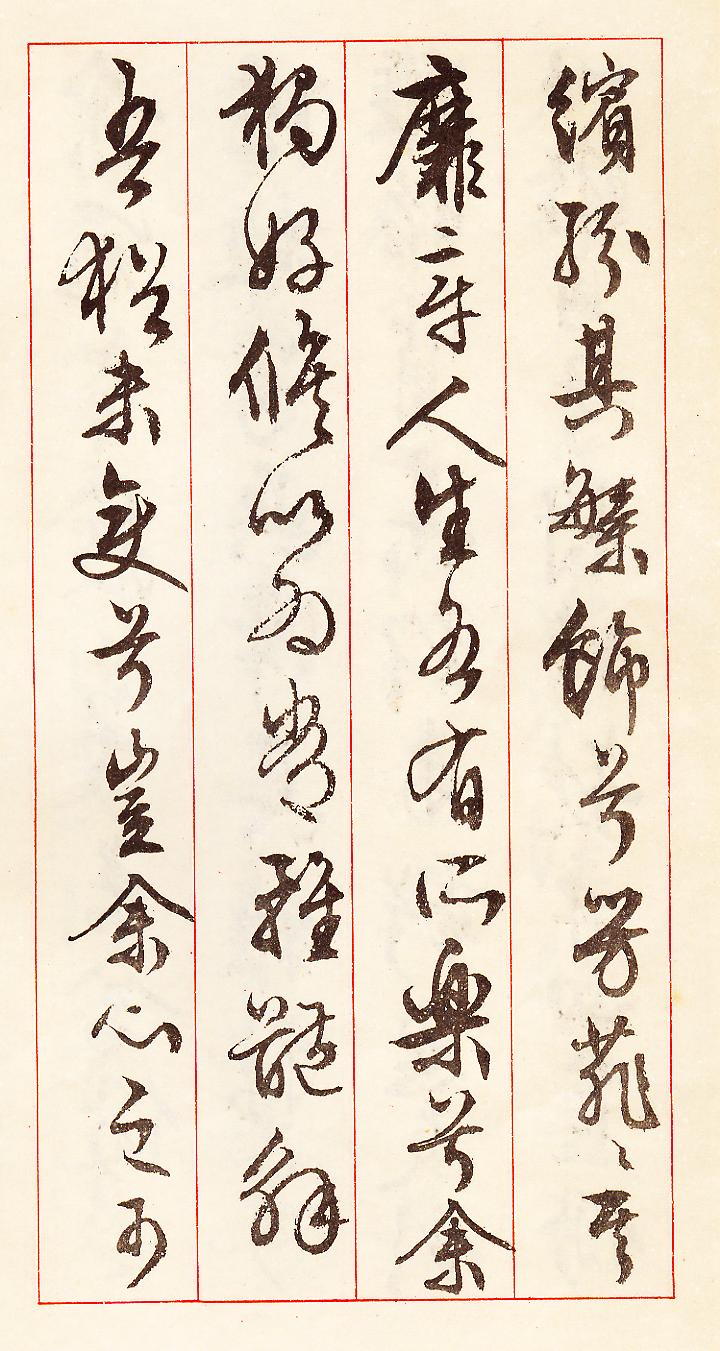 繽紛其繁飾兮芳菲〻其
靡章人生各有所楽兮余
獨好脩以為常雖體解
吾猶未變兮豈余心之可